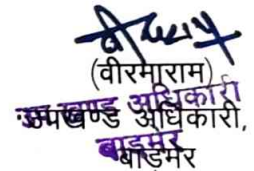 (वीरमाराम)
उप खण्ड अधिकारी
उपखण्ड अधिकारी,
बाड़मेर
बाड़मेर